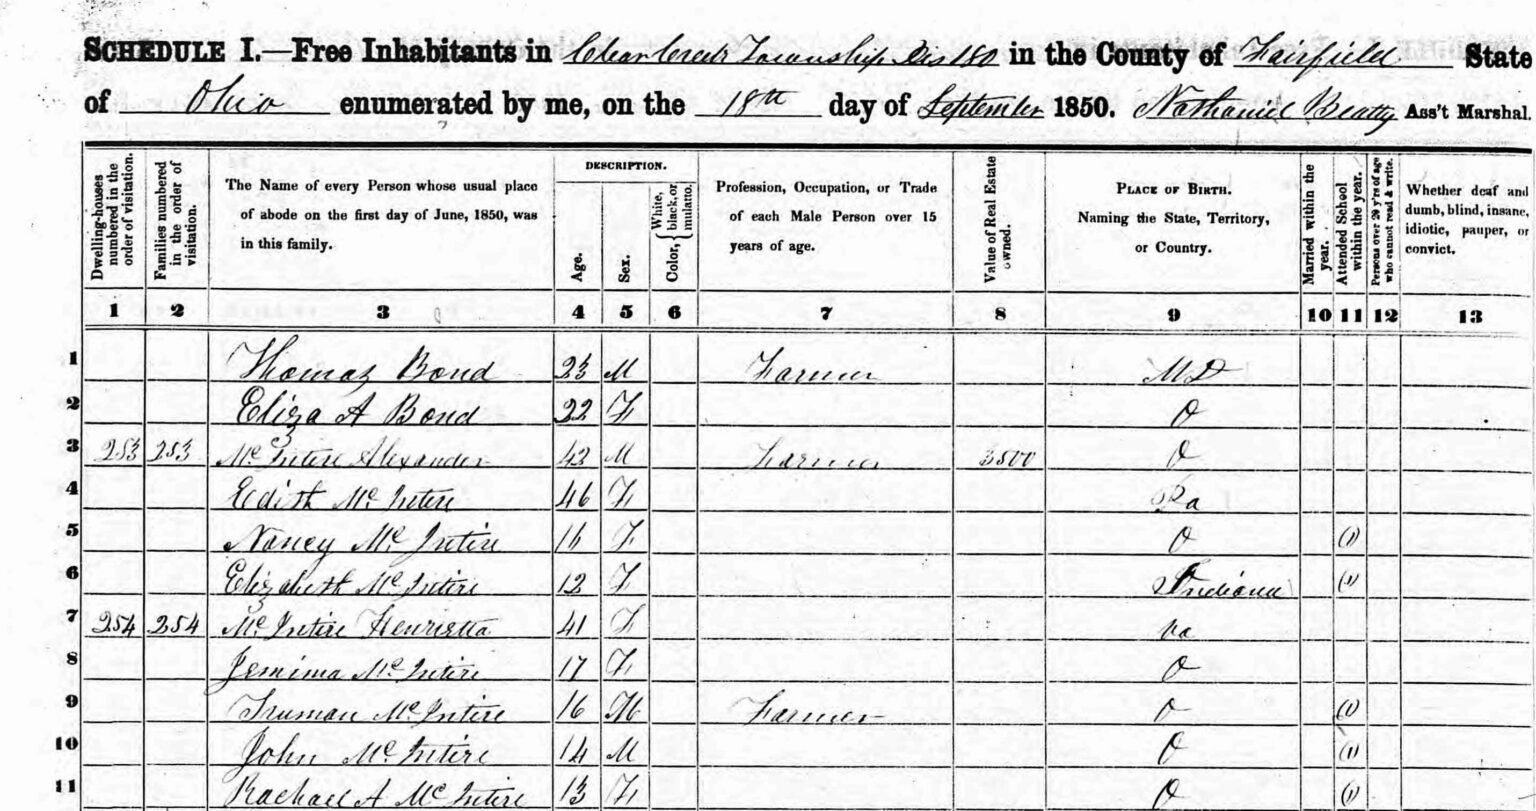 SCHEDULE I.—Free Inhabitants in Clear Creek Township Dis 180 in the County of Fairfield State
of Ohio enumerated by me, on the 18th day of September 1850. Nathaniel Beatty Ass't Marshal.
Dwelling-houses numbered in the order of visitation.
Families numbered in the order of visitation.
The Name of every Person whose usual place of abode on the first day of June, 1850, was in this family.
DESCRIPTION.
Age.
Sex.
Color, { White, black, or mulatto.
Profession, Occupation, or Trade of each Male Person over 15 years of age.
Value of Real Estate owned.
PLACE OF BIRTH. Naming the State, Territory, or Country.
Married within the year.
Attended School within the year.
Persons over 20 y'rs of age who cannot read & write.
Whether deaf and dumb, blind, insane, idiotic, pauper, or convict.
1 2 3 4 5 6 7 8 9 10 11 12 13
1 Thomas Bond 23 M Farmer MD
2 Eliza A Bond 22 F O
3 253 253 Mc Intire Alexander 42 M Farmer 3500 O
4 Edith Mc Intire 46 F Pa
5 Nancy Mc Intire 16 F O (1)
6 Elizabeth Mc Intire 12 F Indiana (1)
7 254 254 Mc Intire Henrietta 41 F Va
8 Jemima Mc Intire 17 F O
9 Truman Mc Intire 16 M Farmer O (1)
10 John Mc Intire 14 M O (1)
11 Rachael A Mc Intire 13 F O (1)